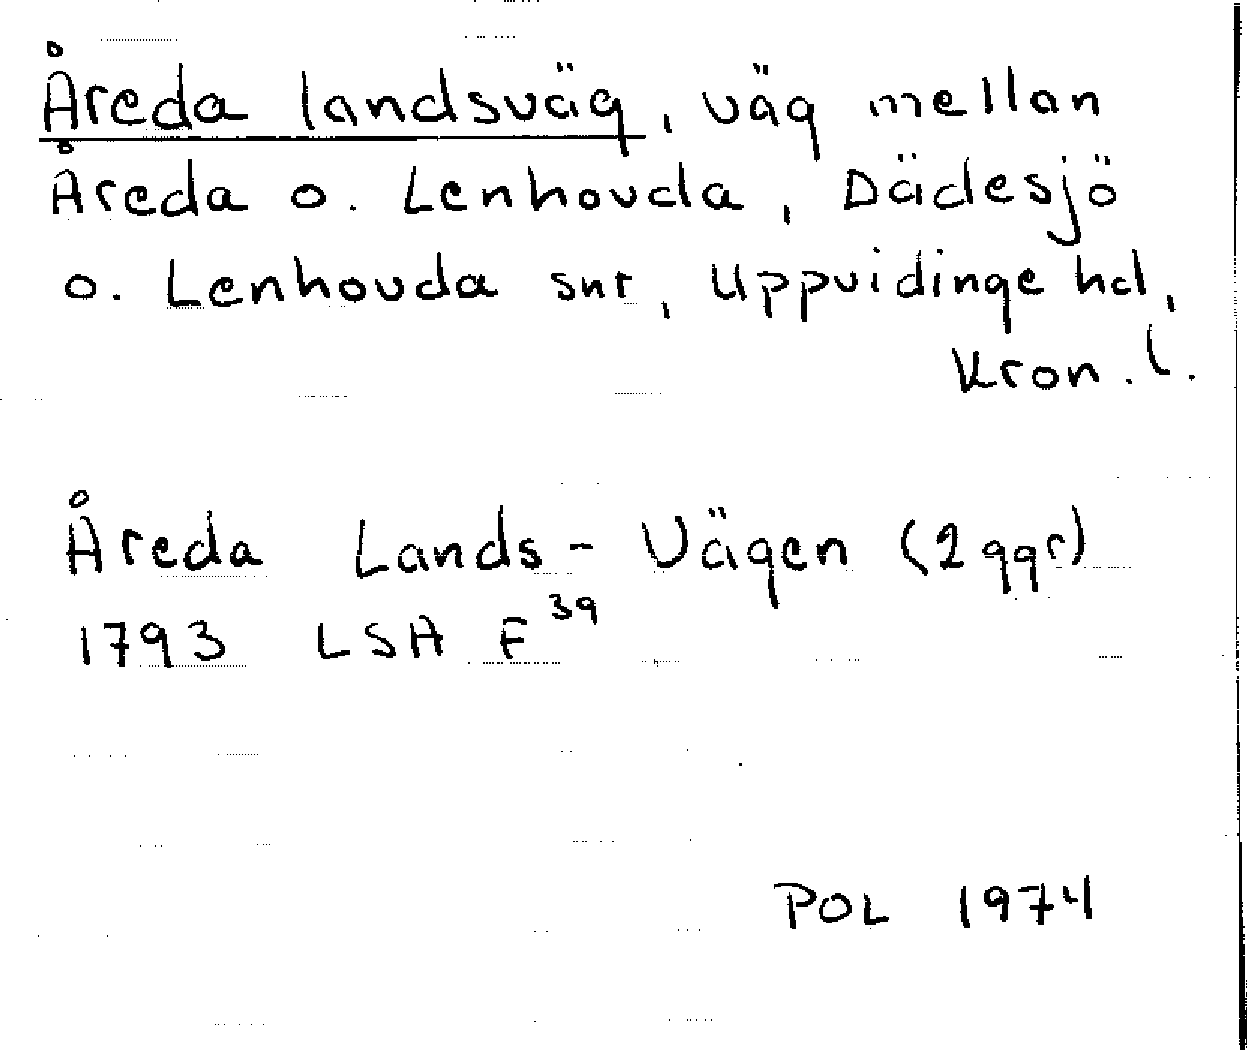 Åreda landsväg, väg mellan
Åreda o. Lenhovda, Dädesjö
o. Lenhovda snr, Uppvidinge hd,
Kron. l.
Åreda Lands-Vägen (2 ggr)
1793 LSA F³⁹
POL 1974